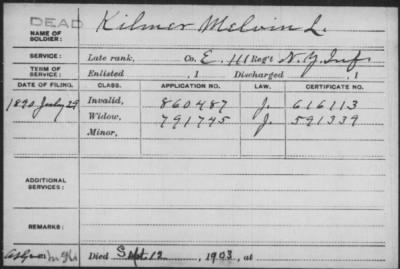 DEAD
NAME OF SOLDIER: Kilmer Melvin L.
SERVICE: Late rank, Co. E, 111 Regt N.Y. Inf.
TERM OF SERVICE: Enlisted , 1 Discharged , 1
DATE OF FILING. CLASS. APPLICATION NO. LAW. CERTIFICATE NO.
1890 July 29 Invalid, 860487 J. 616113
Widow, 791745 J. 591339
Minor,
ADDITIONAL SERVICES:
REMARKS:
Died Sept. 12, 1903, at